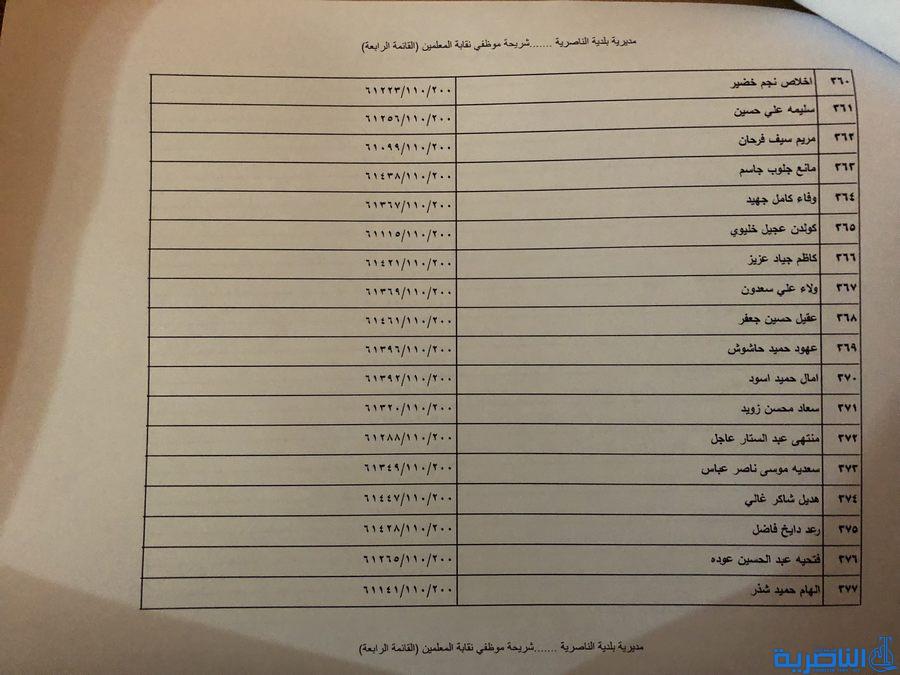 مديرية بلدية الناصرية .......شريحة موظفي نقابة المعلمين (القائمة الرابعة)
٣٦٠ اخلاص نجم خضير ٦١٢٢٣/١١٠/٢٠٠
٣٦١ سليمه علي حسين ٦١٢٥٦/١١٠/٢٠٠
٣٦٢ مريم سيف فرحان ٦١٠٩٩/١١٠/٢٠٠
٣٦٣ مانع جلوب جاسم ٦١٤٣٨/١١٠/٢٠٠
٣٦٤ وفاء كامل جهيد ٦١٣٦٧/١١٠/٢٠٠
٣٦٥ كولدن عجيل خليوي ٦١١١٥/١١٠/٢٠٠
٣٦٦ كاظم جياد عزيز ٦١٤٢١/١١٠/٢٠٠
٣٦٧ ولاء علي سعدون ٦١٣٦٩/١١٠/٢٠٠
٣٦٨ عقيل حسين جعفر ٦١٤٦١/١١٠/٢٠٠
٣٦٩ عهود حميد حاشوش ٦١٣٩٦/١١٠/٢٠٠
٣٧٠ امال حميد اسود ٦١٣٩٢/١١٠/٢٠٠
٣٧١ سعاد محسن زويد ٦١٣٢٠/١١٠/٢٠٠
٣٧٢ منتهى عبد الستار عاجل ٦١٢٨٨/١١٠/٢٠٠
٣٧٣ سعديه موسى ناصر عباس ٦١٣٤٩/١١٠/٢٠٠
٣٧٤ هديل شاكر غالي ٦١٤٤٧/١١٠/٢٠٠
٣٧٥ رعد دايخ فاضل ٦١٤٢٨/١١٠/٢٠٠
٣٧٦ فتحيه عبد الحسين عوده ٦١٢٦٥/١١٠/٢٠٠
٣٧٧ الهام حميد شذر ٦١١٤١/١١٠/٢٠٠
مديرية بلدية الناصرية .......شريحة موظفي نقابة المعلمين (القائمة الرابعة)
الناصرية